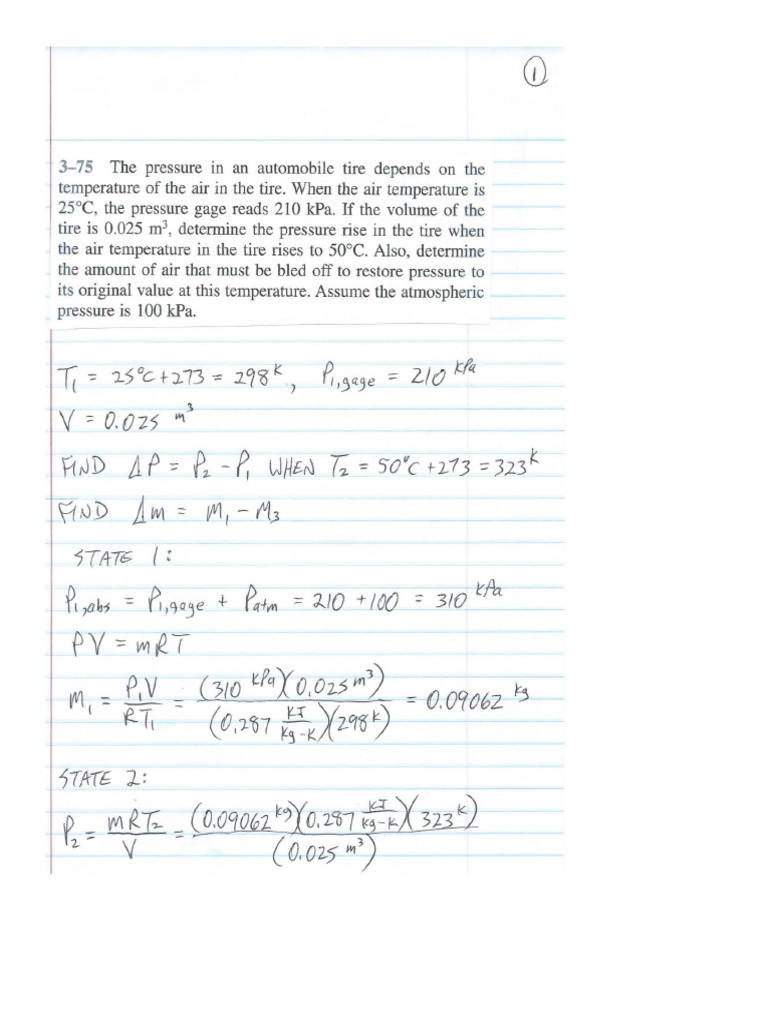 ①
3–75 The pressure in an automobile tire depends on the
temperature of the air in the tire. When the air temperature is
25°C, the pressure gage reads 210 kPa. If the volume of the
tire is 0.025 m³, determine the pressure rise in the tire when
the air temperature in the tire rises to 50°C. Also, determine
the amount of air that must be bled off to restore pressure to
its original value at this temperature. Assume the atmospheric
pressure is 100 kPa.
T₁ = 25°C + 273 = 298 K, P₁,gage = 210 kPa
V = 0.025 m³
FIND ΔP = P₂ - P₁ WHEN T₂ = 50°C + 273 = 323 K
FIND Δm = M₁ - M₃
STATE 1:
P₁,abs = P₁,gage + Patm = 210 + 100 = 310 kPa
PV = mRT
M₁ = P₁V / RT₁ = (310 kPa)(0.025 m³) / (0.287 KJ/Kg-K)(298 K) = 0.09062 kg
STATE 2:
P₂ = MRT₂ / V = (0.09062 kg)(0.287 KJ/Kg-K)(323 K) / (0.025 m³)